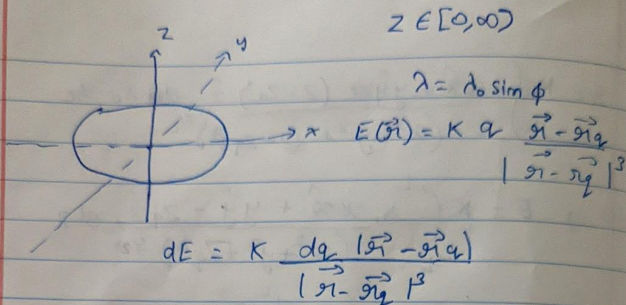 z ∈ [0,∞)
z
y
λ = λ₀ sin ϕ
x
E(r⃗) = K q (r⃗ - r⃗q) / |r⃗ - r⃗q|³
dE = K dq |r⃗ - r⃗q) / |r⃗ - r⃗q|³